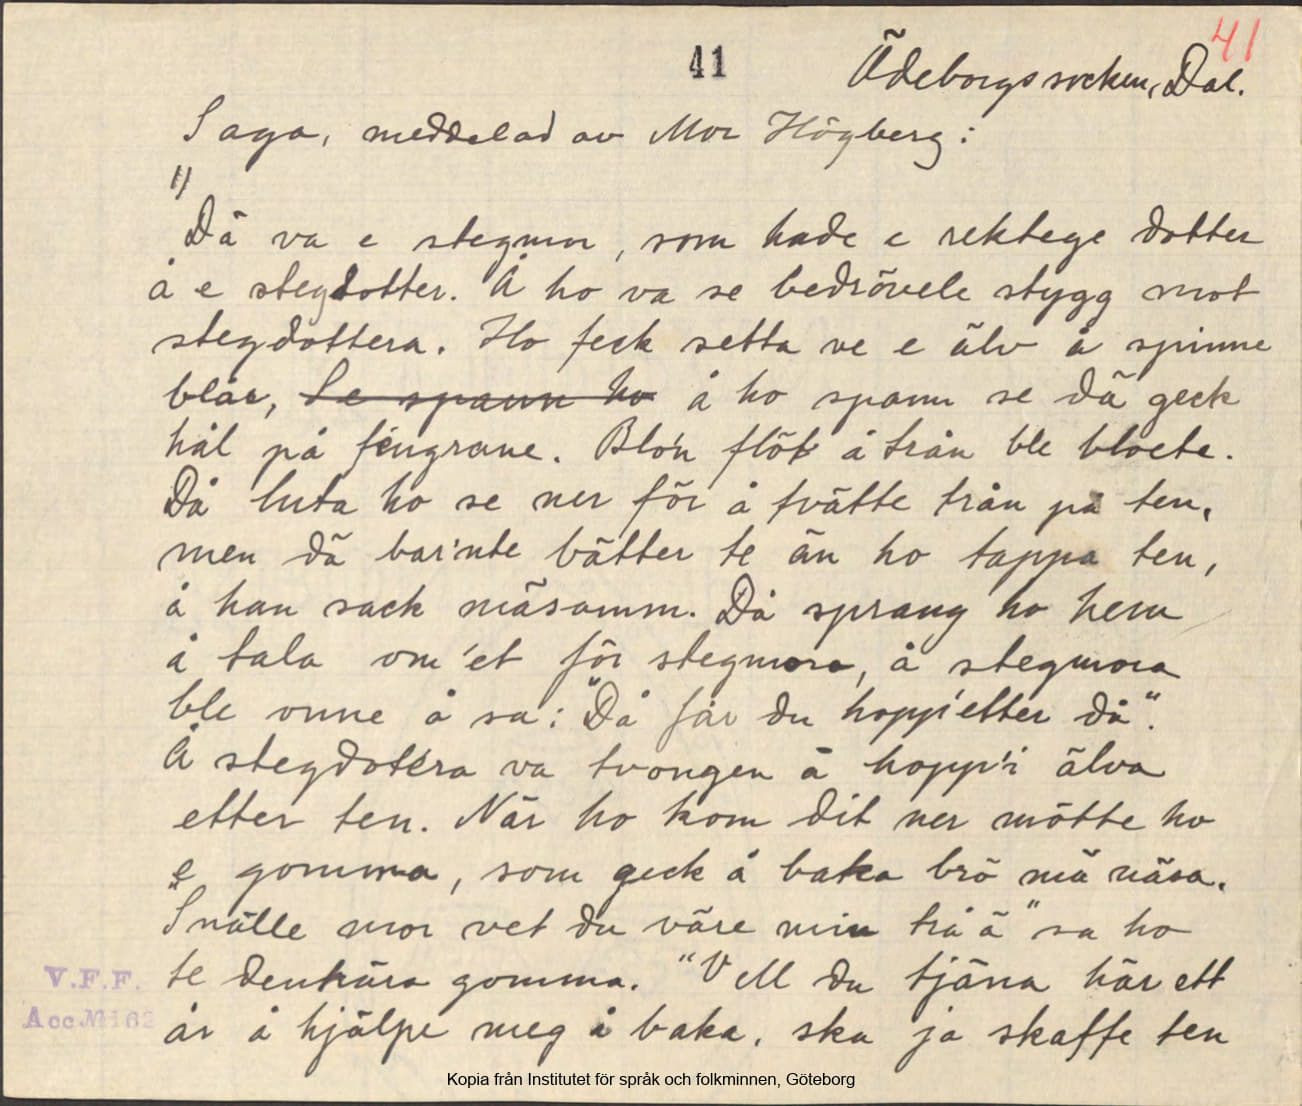 41
41
Ödeborgs socken, Dal.
Saga, meddelad av Mor Högberg:
1)
Dä va e stegmor, som hade e rektege dotter
å e stegdotter. Å ho va se bedrövele stygg mot
stegdottera. Ho feck setta ve e älv å spinne
blår, Se spann ho å ho spann se dä geck
hål på fingrane. Blo'n flöt å trån ble bloete.
Då luta ho se ner för å tvätte trån på ten,
men dä bar'nte bätter te än ho tappa ten,
å han sack mäsamm. Då sprang ho hem
å tala om'et för stegmora, å stegmora
ble onne å sa: "Då får du hopp'i etter då".
Å stegdot'era va tvongen å hopp'i älva
etter ten. När ho kom dit ner mötte ho
e gomma, som geck å baka brö mä näsa.
"Snälle mor vet du väre min trå ä" sa ho
te denhära gomma. "Vell du tjäna här ett
år å hjälpe meg å baka, ska ja skaffe ten
V.F.F.
Acc.№ 162
Kopia från Institutet för språk och folkminnen, Göteborg